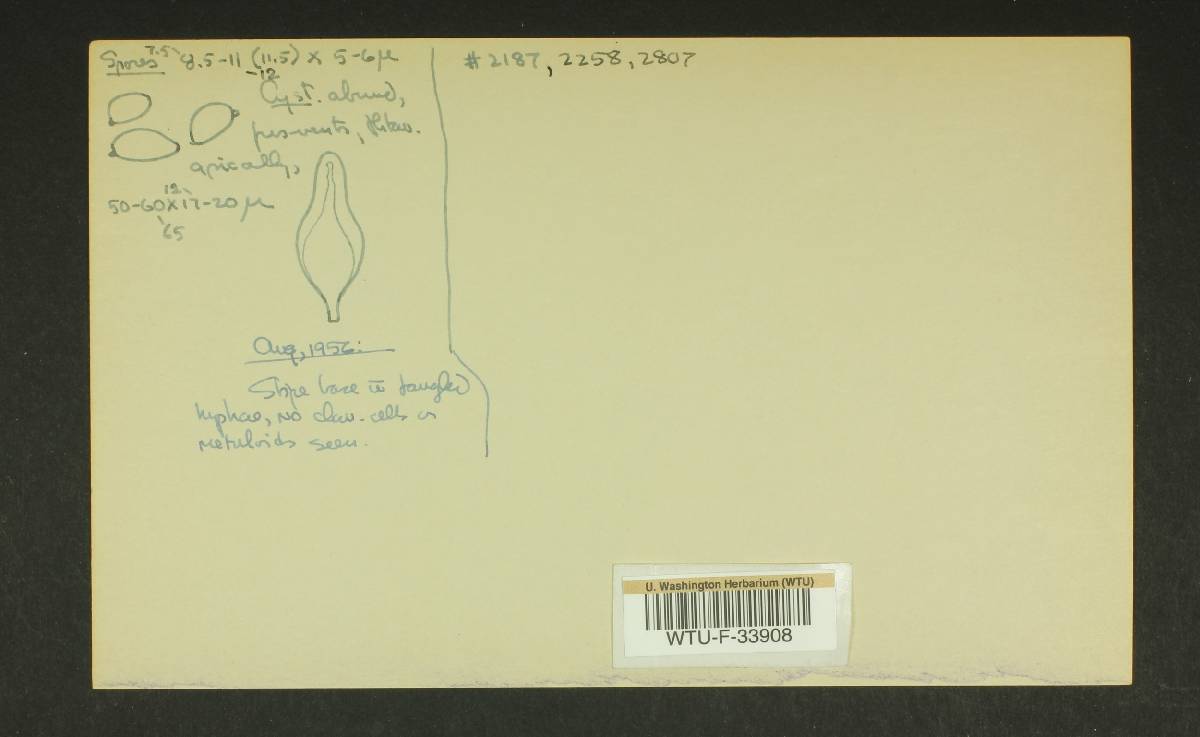 Spores 7.5- 8.5-11 (11.5) x 5-6μ
-12
Cyst. abund,
fus-ventr,
apically,
12-
50-60x17-20μ
65
Aug, 1956:
Stipe base w tangled
hyphae, no clav. cells or
metuloids seen.
#2187, 2258, 2807
U. Washington Herbarium (WTU)
WTU-F-33908